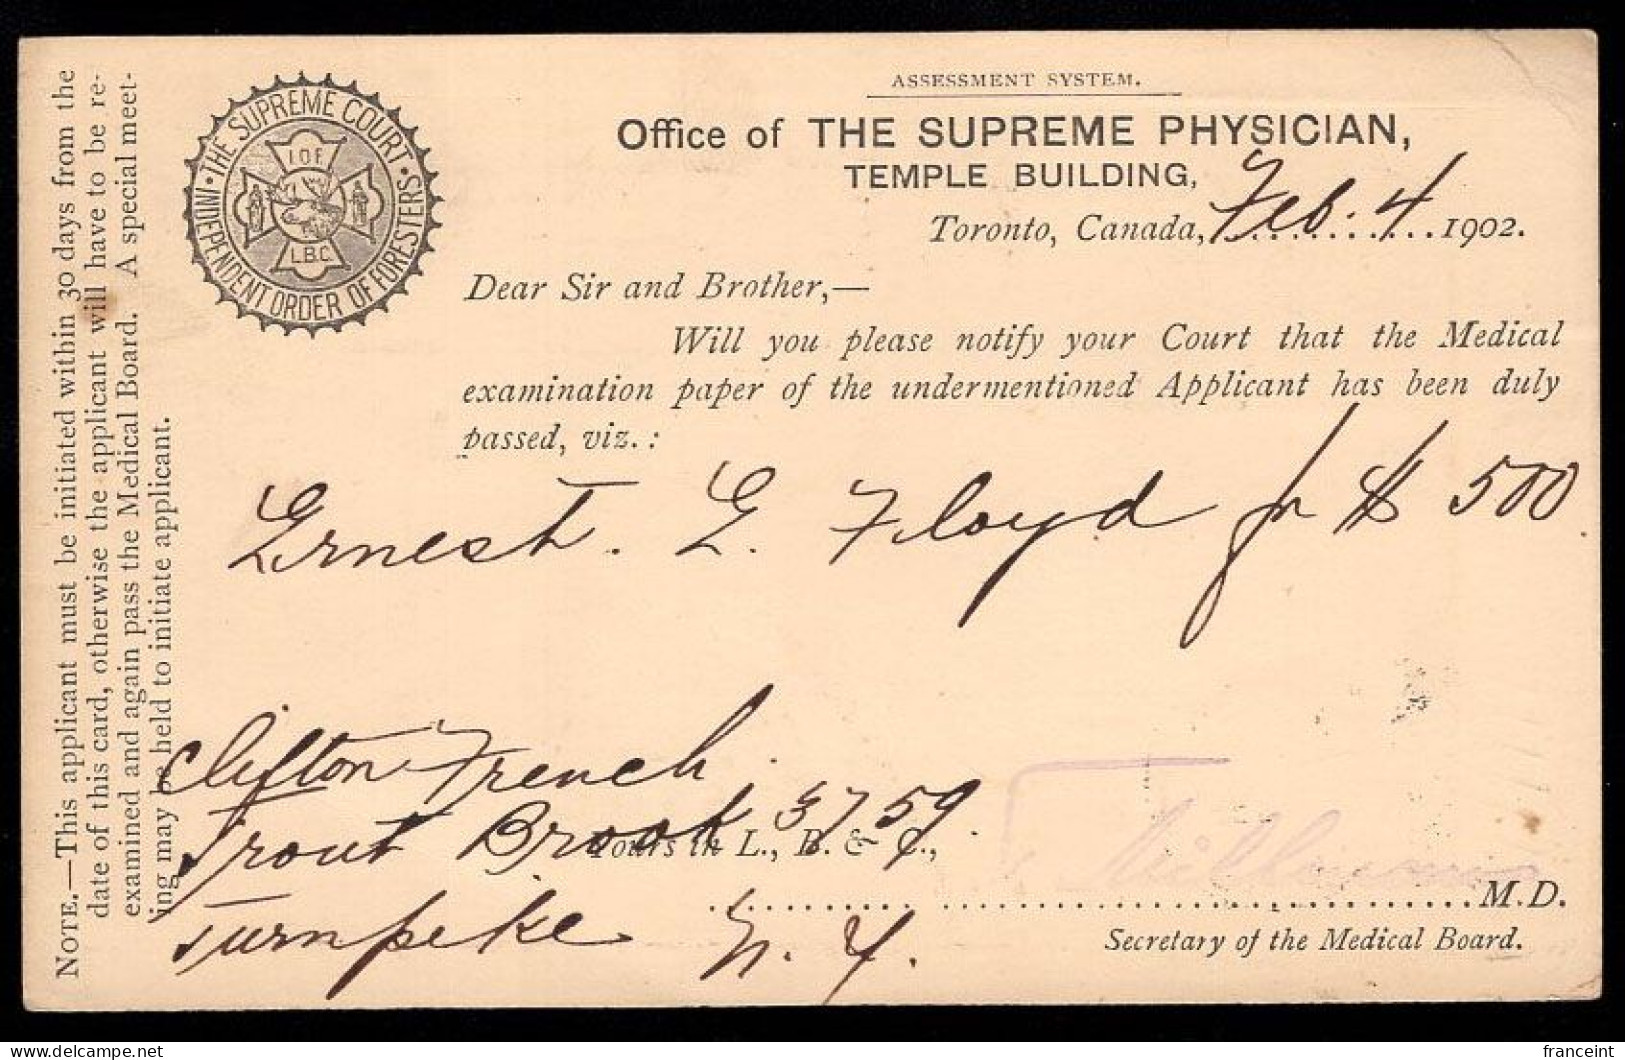 ASSESSMENT SYSTEM.
Office of THE SUPREME PHYSICIAN,
TEMPLE BUILDING,
Toronto, Canada, Feb. 4 1902.
THE SUPREME COURT
INDEPENDENT ORDER OF FORESTERS
I.O.F.
L.B.C.
Dear Sir and Brother,—
Will you please notify your Court that the Medical
examination paper of the undermentioned Applicant has been duly
passed, viz. :
Ernest. E. Floyd Jr $ 500
Clifton French
Trout Brook 3759
Yours in L., B. & C.,
M.D.
Turnpeke N. Y.
Secretary of the Medical Board.
NOTE.—This applicant must be initiated within 30 days from the
date of this card, otherwise the applicant will have to be re-
examined and again pass the Medical Board. A special meet-
ing may be held to initiate applicant.
delcampe.net
franceint